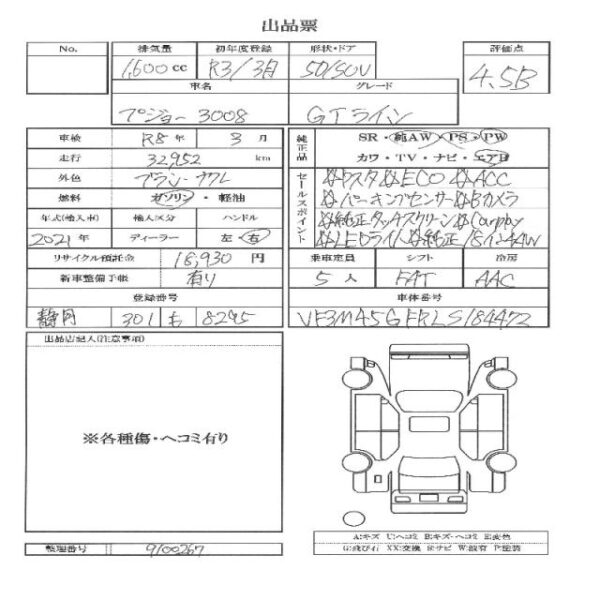 出品票
No. 排気量 初年度登録 形状・ドア 評価点
1,600 cc R3/3月 5D/SUV 4.5B
車名 グレード
プジョー 3008 GTライン
車検 R8年 3月
走行 32,952 km
外色
燃料 ガソリン・軽油
年式(輸入車) 輸入区分 ハンドル
2021年 ディーラー 左・右
リサイクル預託金 18,930円
新車整備手帳 有り
登録番号
静岡 301 も 8295
純正品 SR・純AW・PS・PW
カワ・TV・ナビ・エアB
セールスポイント
ECO ACC
パーキングセンサー Bカメラ
純正タッチスクリーン Carplay
LEDライト 純正18インチAW
乗車定員 シフト 冷房
5人 FAT AAC
車体番号
VF3M45GFRLS184472
出品店記入(注意事項)
※各種傷・ヘコミ有り
A:キズ U:ヘコミ B:キズ・ヘコミ E:変色
G:飛び石 XX:交換 S:サビ W:波有 P:塗装
整理番号 9100267